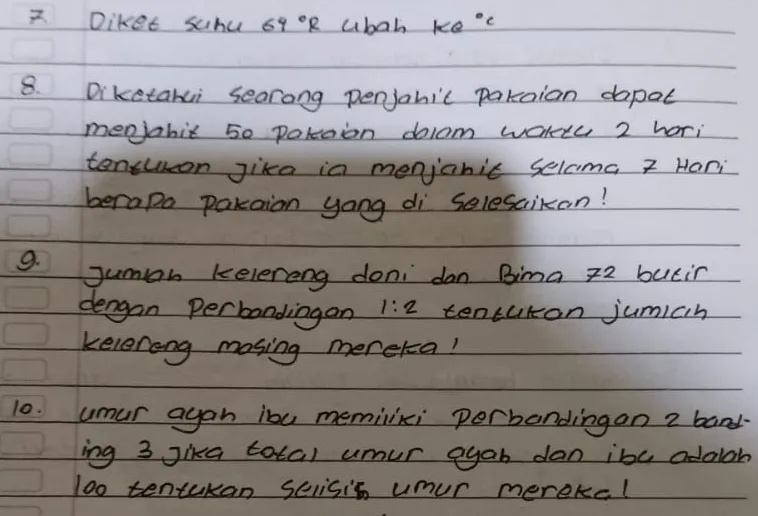 7 Diket suhu 69 °R ubah ke °c
8. Diketahui seorang penjahit pakaian dapat
menjahit 50 pakaian dalam waktu 2 hari
tentukan jika ia menjahit selama 7 Hari
berapa pakaian yang di selesaikan!
9. Jumlah kelereng doni dan Bima 72 butir
dengan perbandingan 1:2 tentukan jumlah
kelereng masing mereka!
10. umur ayah ibu memiliki perbandingan 2 band-
ing 3 jika total umur ayah dan ibu adalah
100 tentukan selisih umur mereka!